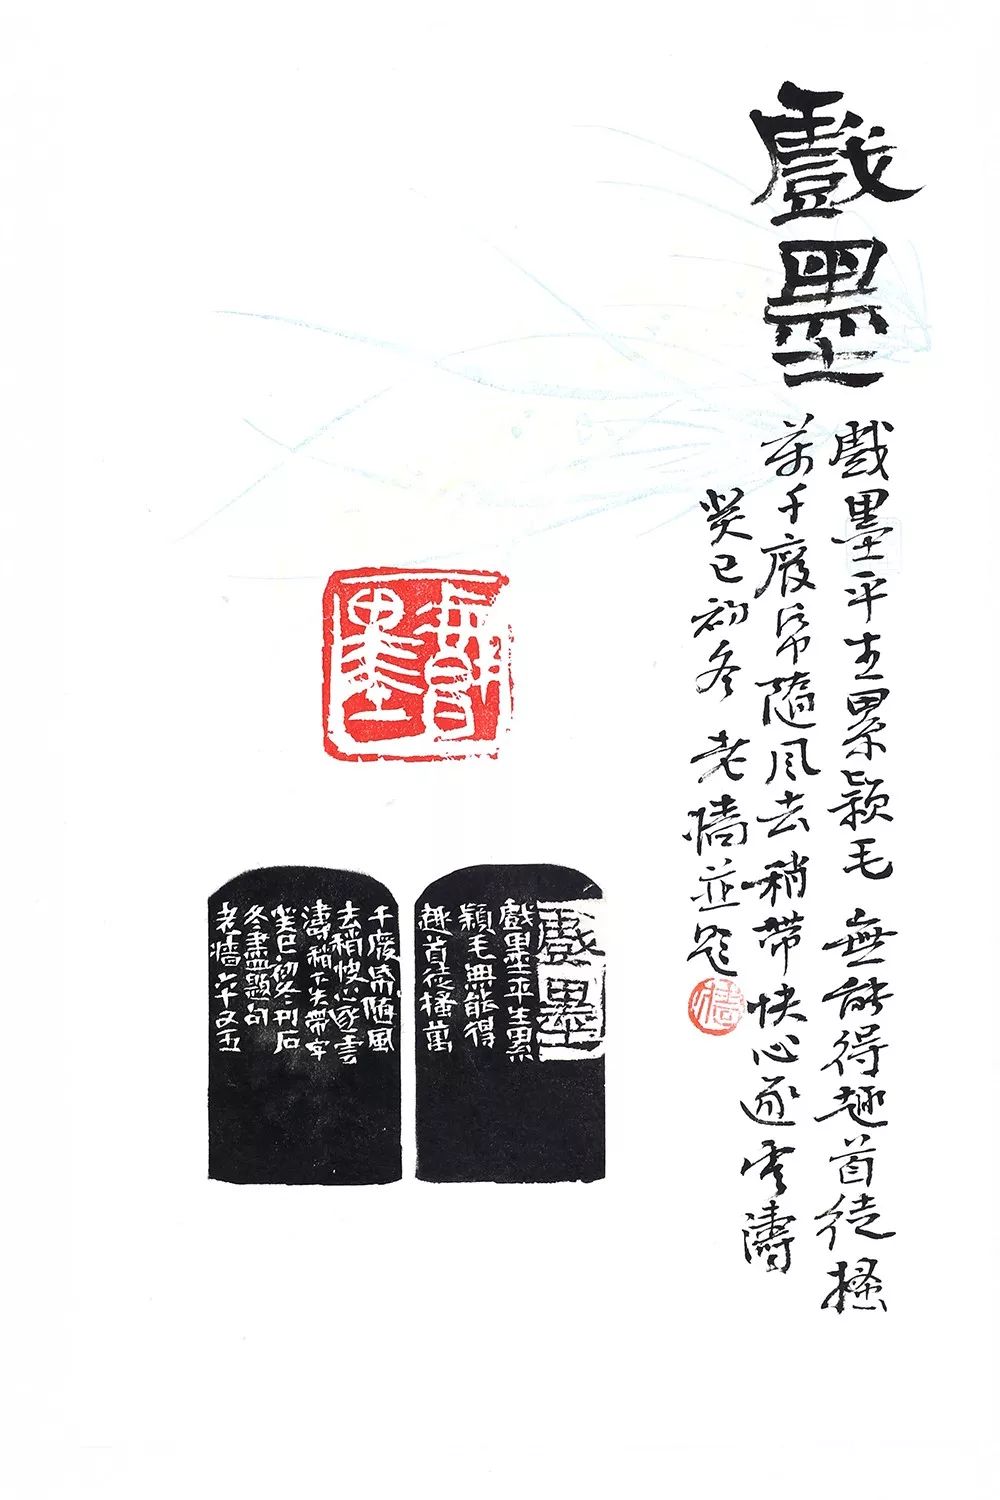 戲墨
戲墨平生累穎毛 無能得趣首徒搔
萬千廢帋隨風去稍帶快心逐雲濤
癸巳初冬 老牆並題
牆
墨
戲墨
戲墨平生累
穎毛無能得
趣首徒搔萬
千廢帋隨風
去稍快心逐雲
濤稍下失帶字
癸巳初冬刊石
冬盡題句
老牆六十又五